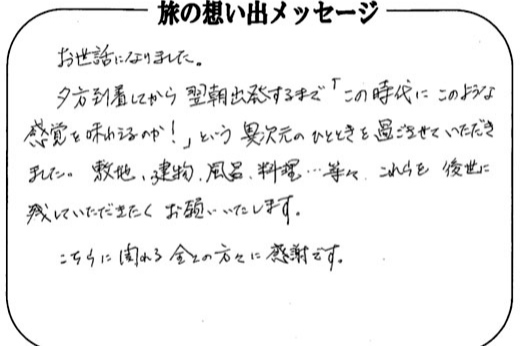 旅の想い出メッセージ
お世話になりました。
夕方到着してから 翌朝出発するまで「この時代に このような
感覚を味わえるのか!」という 異次元の ひとときを過ごさせていただき
ました。 敷地、建物、風呂、料理…等々、これらを 後世に
残していただきたく お願いいたします。
こちらに関わる 全ての方々に 感謝です。